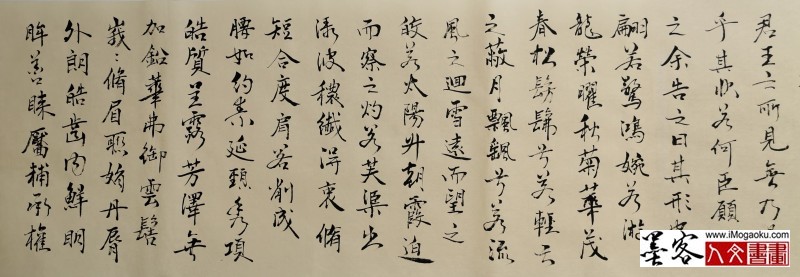 君王之所見無乃
乎其狀若何臣願
之余告之曰其形也
翩若驚鴻婉若游
龍榮曜秋菊華茂
春松髣髴兮若輕雲
之蔽月飄飖兮若流
風之迴雪遠而望之
皎若太陽升朝霞迫
而察之灼若芙蕖出
淥波穠纖得衷脩
短合度肩若削成
腰如約素延頸秀項
皓質呈露芳澤無
加鉛華弗御雲髻
峩〻脩眉聯娟丹脣
外朗皓齒內鮮明
眸善睞靨輔承權
www.iMogaoku.com
墨客人文書畫